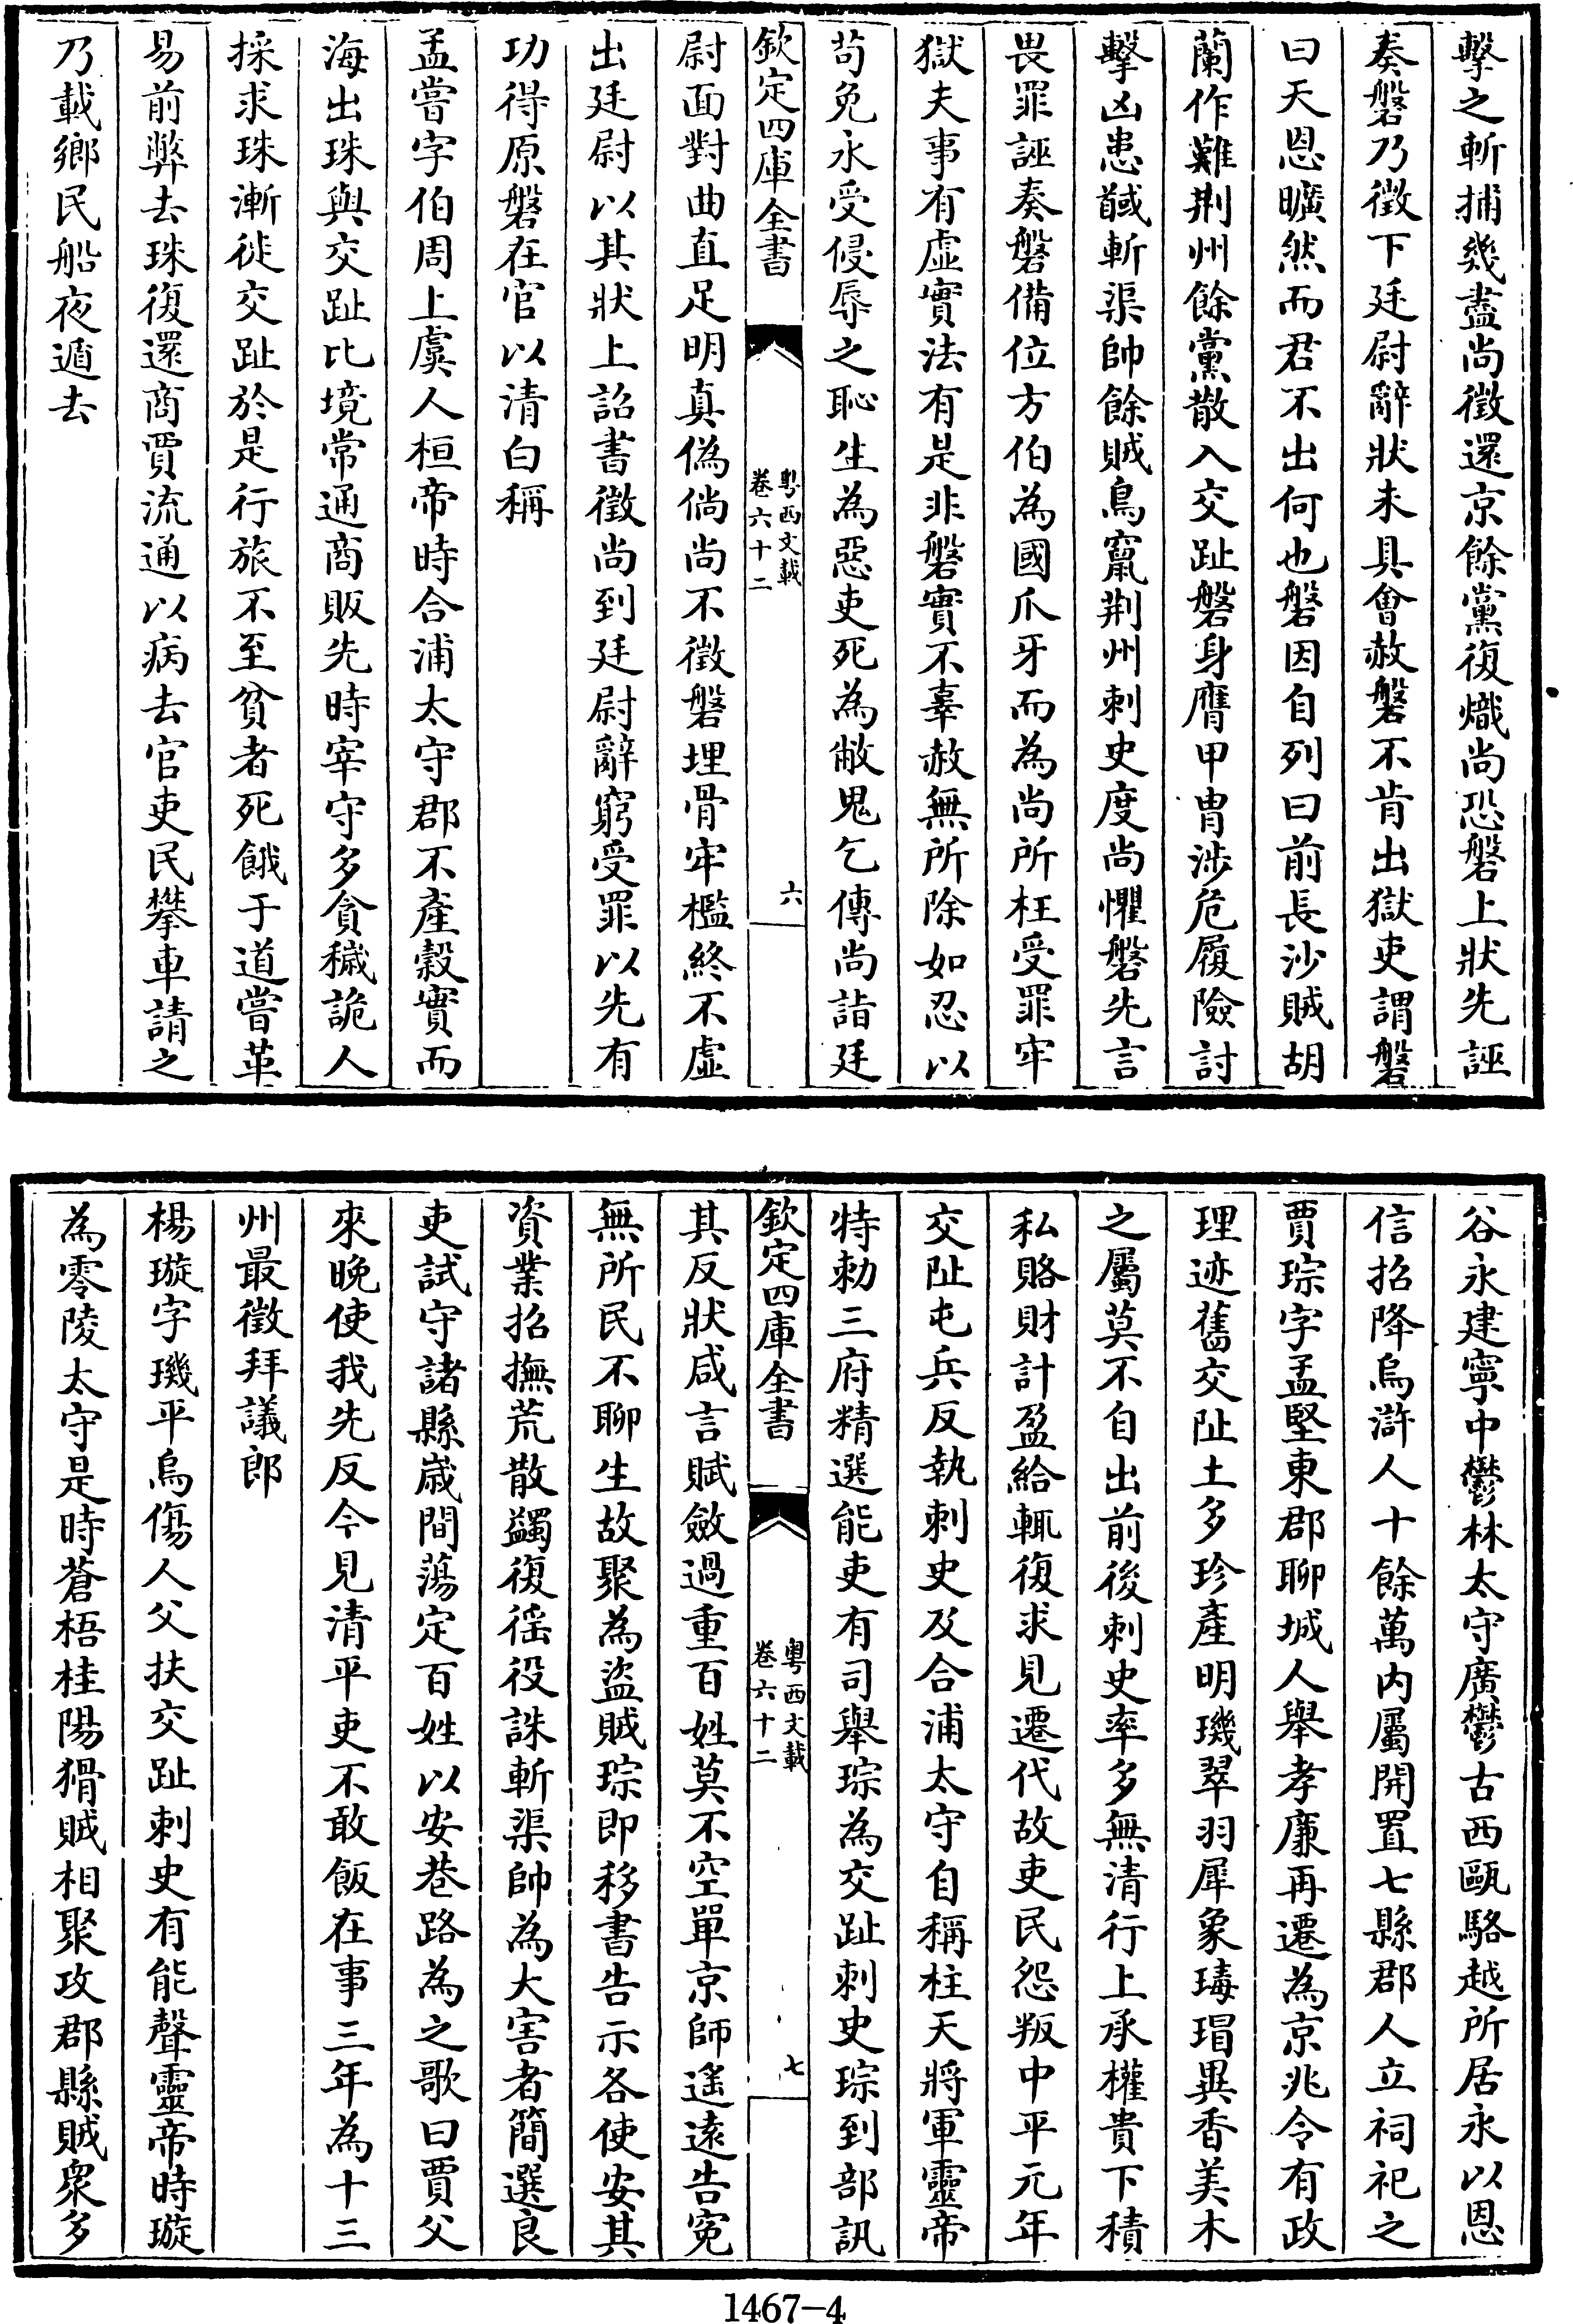 擊之斬捕幾盡尚徵還京餘黨復熾尚恐磐上狀先誣
奏磐乃徵下廷尉辭狀未具會赦磐不肯出獄吏謂磐
曰天恩曠然而君不出何也磐因自列曰前長沙賊胡
蘭作難荆州餘黨散入交趾磐身膺甲冑涉危履險討
擊凶患馘斬渠帥餘賊鳥竄荆州刺史度尚懼磐先言
畏罪誣奏磐備位方伯為國爪牙而為尚所枉受罪牢
獄夫事有虛實法有是非磐實不辜赦無所除如忍以
苟免永受侵辱之恥生為惡吏死為敝鬼乞傳尚詣廷
欽定四庫全書
粤西文載
卷六十二
六
尉面對曲直足明真偽倘尚不徵磐埋骨牢檻終不虛
出廷尉以其狀上詔書徵尚到廷尉辭窮受罪以先有
功得原磐在官以清白稱
孟嘗字伯周上虞人桓帝時合浦太守郡不產穀實而
海出珠與交趾比境常通商販先時宰守多貪穢詭人
採求珠漸徙交趾於是行旅不至貧者死餓于道嘗革
易前弊去珠復還商賈流通以病去官吏民攀車請之
乃載鄉民船夜遁去
谷永建寧中鬱林太守廣鬱古西甌駱越所居永以恩
信招降烏滸人十餘萬内屬開置七縣郡人立祠祀之
賈琮字孟堅東郡聊城人舉孝廉再遷為京兆令有政
理迹舊交阯土多珍產明璣翠羽犀象瑇瑁異香美木
之屬莫不自出前後刺史率多無清行上承權貴下積
私賂財計盈給輒復求見遷代故吏民怨叛中平元年
交阯屯兵反執刺史及合浦太守自稱柱天將軍靈帝
特勅三府精選能吏有司舉琮為交趾刺史琮到部訊
欽定四庫全書
粤西文載
卷六十二
七
其反狀咸言賦斂過重百姓莫不空單京師遙遠告寃
無所民不聊生故聚為盜賊琮即移書告示各使安其
資業招撫荒散蠲復徭役誅斬渠帥為大害者簡選良
吏試守諸縣歲間蕩定百姓以安巷路為之歌曰賈父
來晚使我先反今見清平吏不敢飯在事三年為十三
州最徵拜議郎
楊璇字璣平烏傷人父扶交趾刺史有能聲靈帝時璇
為零陵太守是時蒼梧桂陽猾賊相聚攻郡縣賊衆多
1467-4